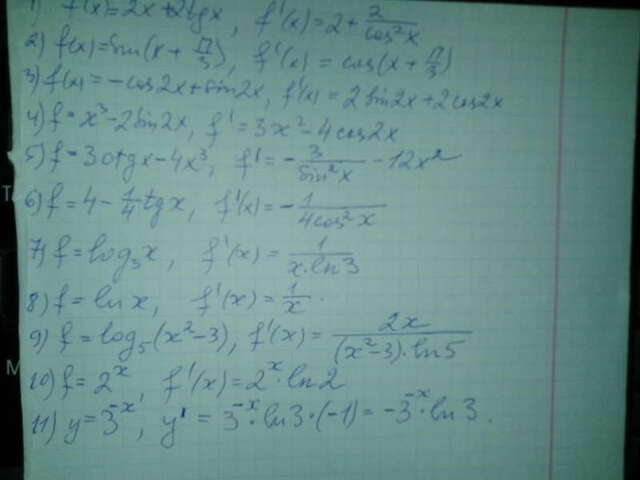 1) f'(x)=2x+2tgx, f'(x)=2+2/cos²x
2) f(x)=sin(x+π/3), f'(x)=cos(x+π/3)
3) f(x)=-cos2x+sin2x, f'(x)=2sin2x+2cos2x
4) f=x³-2sin2x, f'=3x²-4cos2x
5) f=3ctgx-4x³, f'=-3/sin²x-12x²
6) f=4-1/4tgx, f'(x)=-1/4cos²x
7) f=log₃x, f'(x)=1/x·ln3
8) f=lnx, f'(x)=1/x.
9) f=log₅(x²-3), f'(x)=2x/(x²-3)·ln5
10) f=2ˣ, f'(x)=2ˣ·ln2
11) y=3⁻ˣ, y'=3⁻ˣ·ln3·(-1)=-3⁻ˣ·ln3.